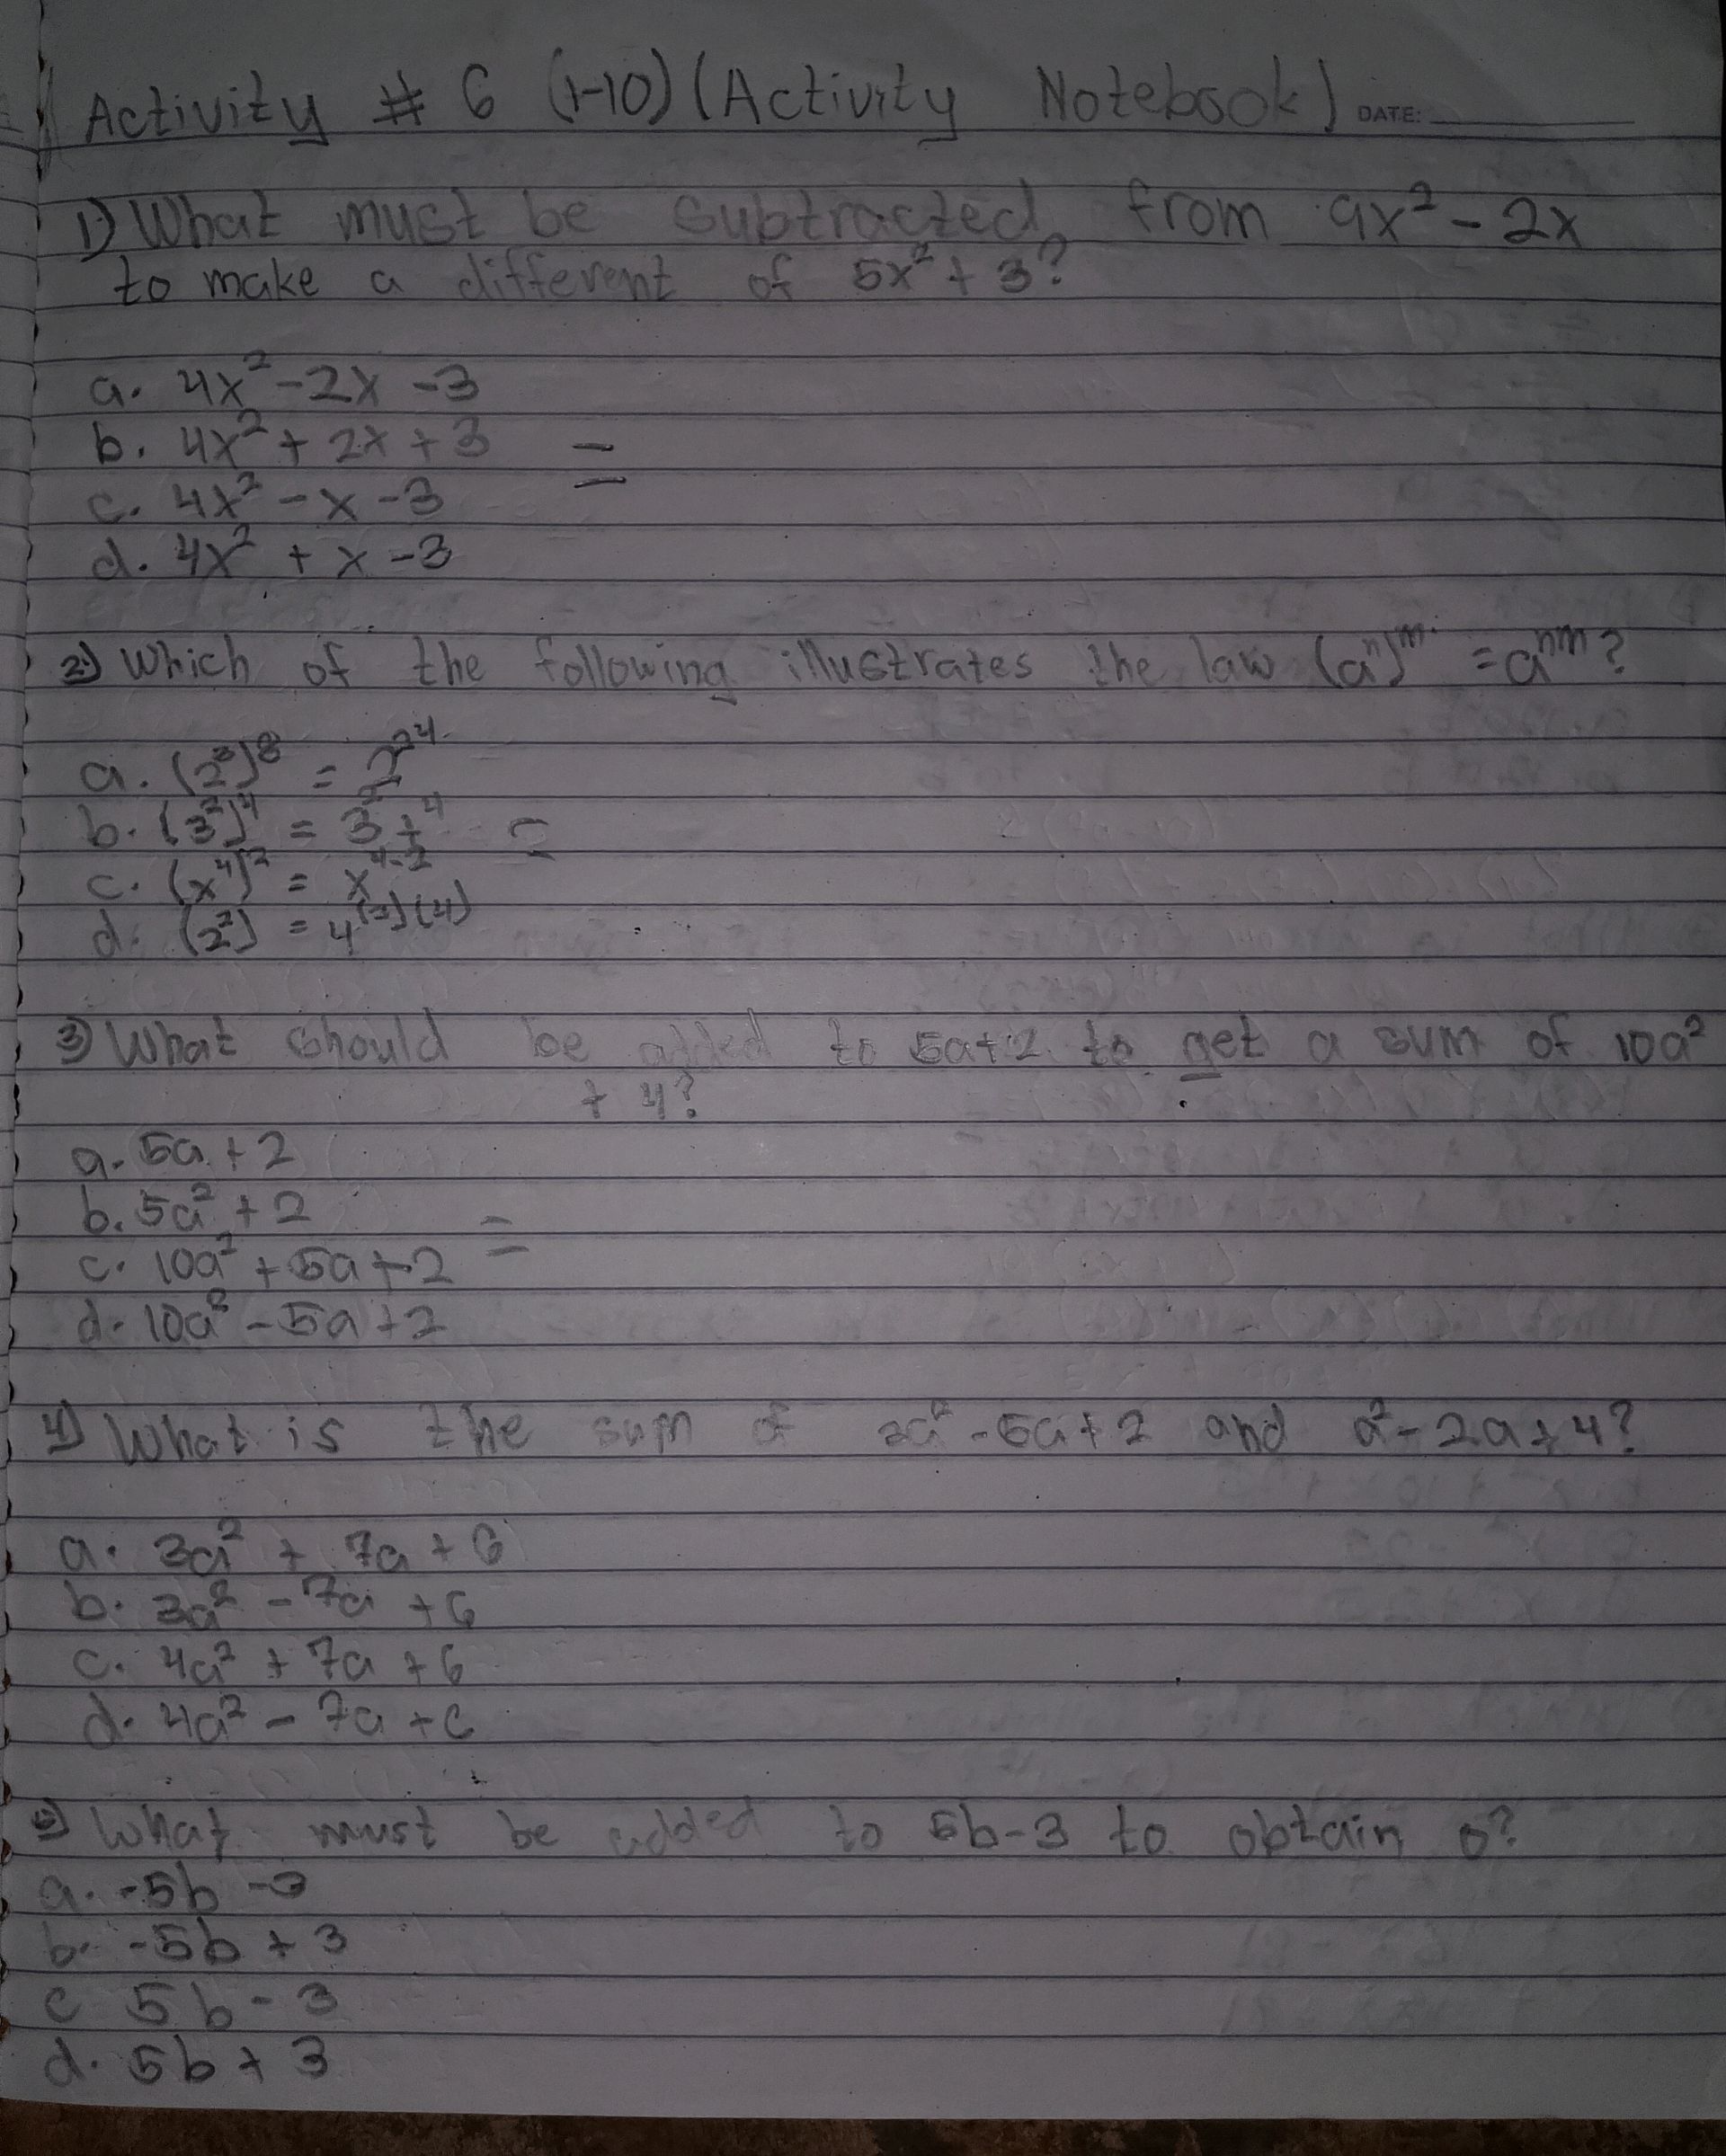 Activity # 6 (1-10) (Activity Notebook) DATE:
1) What must be subtracted from 9x² - 2x
to make a different of 5x² + 3?
a. 4x² - 2x - 3
b. 4x² + 2x + 3 =
c. 4x² - x - 3
d. 4x² + x - 3
2) Which of the following illustrates the law (aⁿ)ᵐ = aⁿᵐ?
a. (2³)⁸ = 2²⁴
b. (3²)⁴ = 3²⁺⁴ =
c. (x⁴)² = x⁴⁻²
d. (2²) = 4⁽²⁾⁽⁴⁾
3) What should be added to 5a+2 to get a sum of 10a²
+ 4?
a. 5a + 2
b. 5a² + 2
c. 10a² + 5a + 2 =
d. 10a² - 5a + 2
4) What is the sum of 3a² - 5a + 2 and a² - 2a + 4?
a. 3a² + 7a + 6
b. 3a² - 7a + 6
c. 4a² + 7a + 6
d. 4a² - 7a + 6
5) What must be added to 5b - 3 to obtain 0?
a. -5b - 3
b. -5b + 3
c 5b - 3
d. 5b + 3